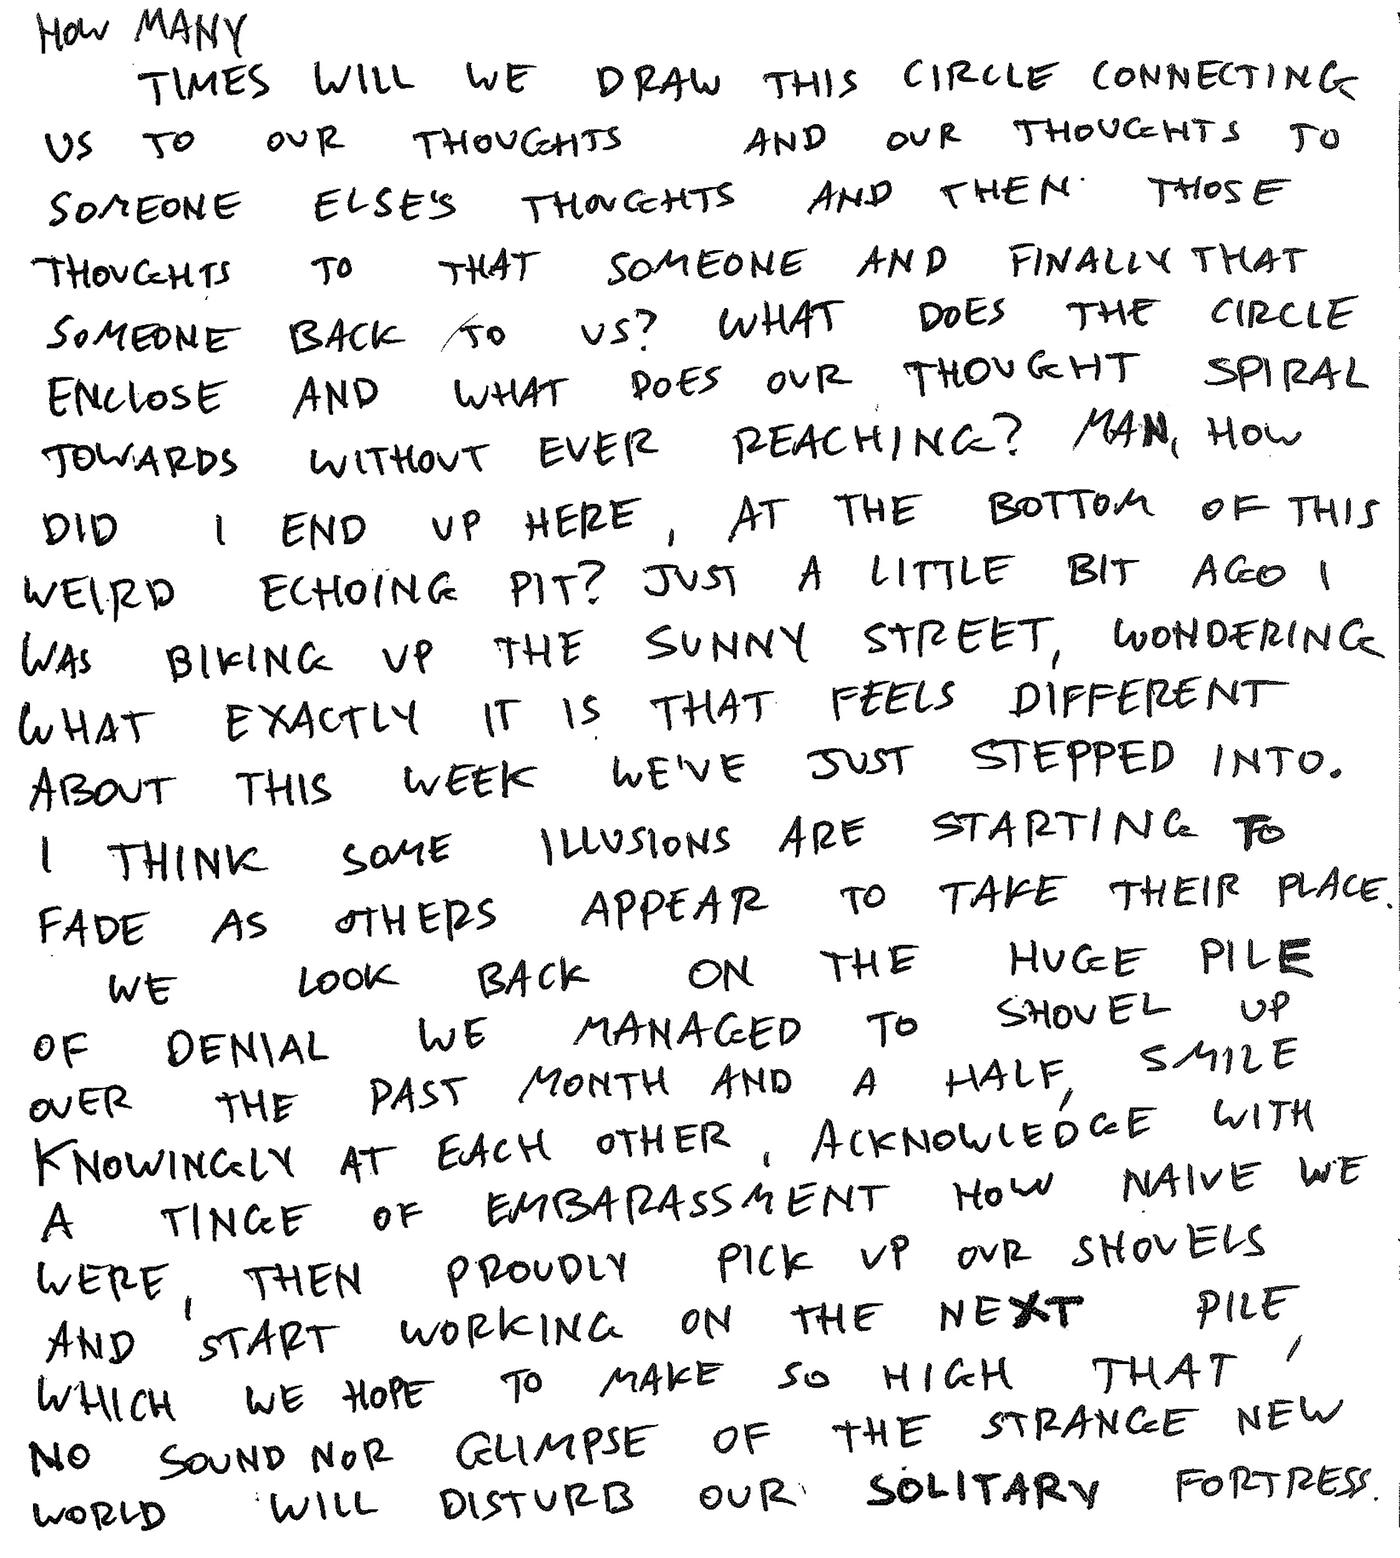 HOW MANY
TIMES WILL WE DRAW THIS CIRCLE CONNECTING
US TO OUR THOUGHTS AND OUR THOUGHTS TO
SOMEONE ELSE'S THOUGHTS AND THEN THOSE
THOUGHTS TO THAT SOMEONE AND FINALLY THAT
SOMEONE BACK TO US? WHAT DOES THE CIRCLE
ENCLOSE AND WHAT DOES OUR THOUGHT SPIRAL
TOWARDS WITHOUT EVER REACHING? MAN, HOW
DID I END UP HERE, AT THE BOTTOM OF THIS
WEIRD ECHOING PIT? JUST A LITTLE BIT AGO I
WAS BIKING UP THE SUNNY STREET, WONDERING
WHAT EXACTLY IT IS THAT FEELS DIFFERENT
ABOUT THIS WEEK WE'VE JUST STEPPED INTO.
I THINK SOME ILLUSIONS ARE STARTING TO
FADE AS OTHERS APPEAR TO TAKE THEIR PLACE.
WE LOOK BACK ON THE HUGE PILE
OF DENIAL WE MANAGED TO SHOVEL UP
OVER THE PAST MONTH AND A HALF, SMILE
KNOWINGLY AT EACH OTHER, ACKNOWLEDGE WITH
A TINGE OF EMBARASSMENT HOW NAIVE WE
WERE, THEN PROUDLY PICK UP OUR SHOVELS
AND START WORKING ON THE NEXT PILE,
WHICH WE HOPE TO MAKE SO HIGH THAT
NO SOUND NOR GLIMPSE OF THE STRANGE NEW
WORLD WILL DISTURB OUR SOLITARY FORTRESS.